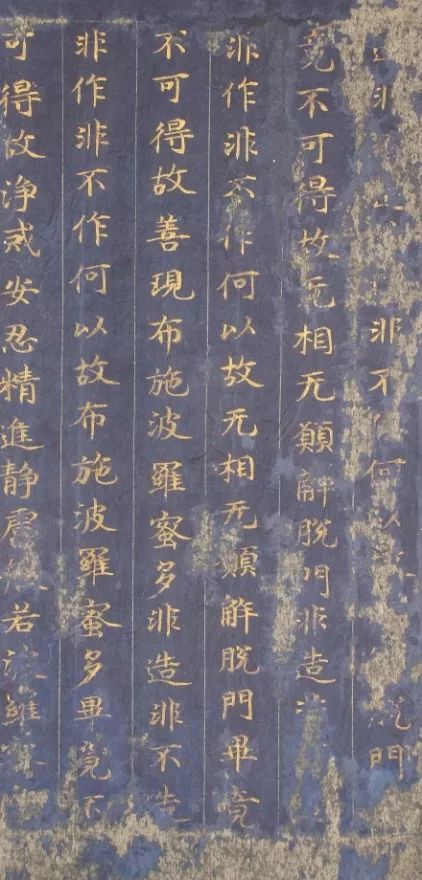 非非不何以門
竟不可得故无相无願解脱門非造非
非作非不作何以故无相无願解脱門畢竟
不可得故善現布施波羅蜜多非造非不造
非作非不作何以故布施波羅蜜多畢竟不
可得故浄戒安忍精進静慮般若波羅蜜